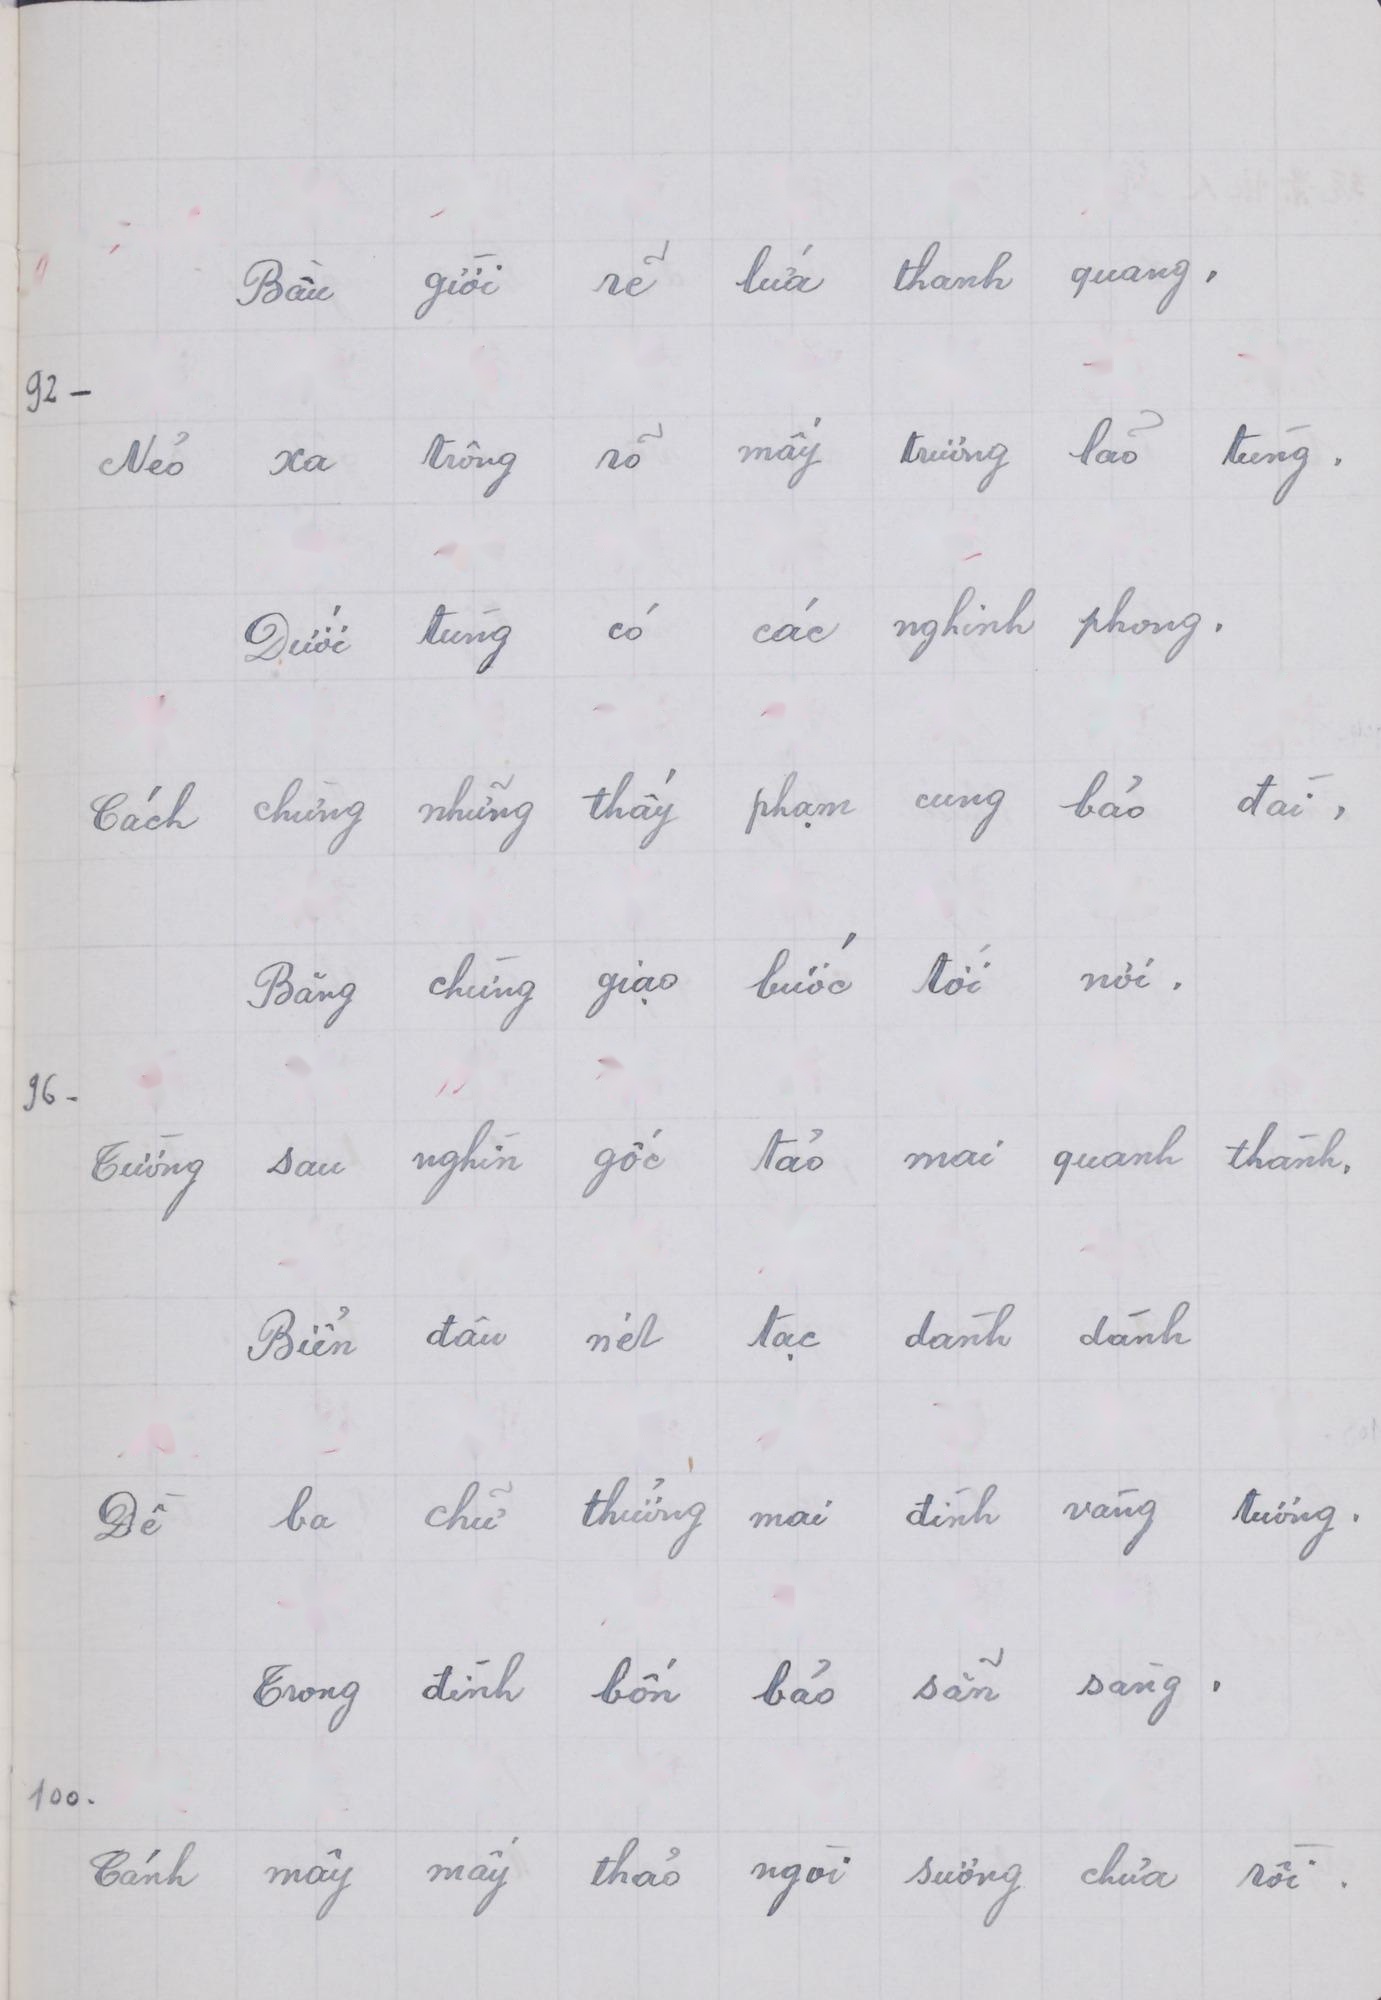 Bầu giời rẽ lứa thanh quang,
92 -
Nẻo xa trông rõ mấy trương lão tùng.
Dưới tùng có các nghinh phong.
Cách chừng những thấy phạm cung bảo đài,
Băng chừng giạo bước tới nơi.
96 -
Tường sau nghìn gốc tảo mai quanh thành,
Biển đâu nét tạc dành dành
Đề ba chữ thưởng mai đình vàng tương.
Trong đình bốn bảo sẵn sàng,
100.
Cánh mây mấy thảo ngòi sương chửa rồi.